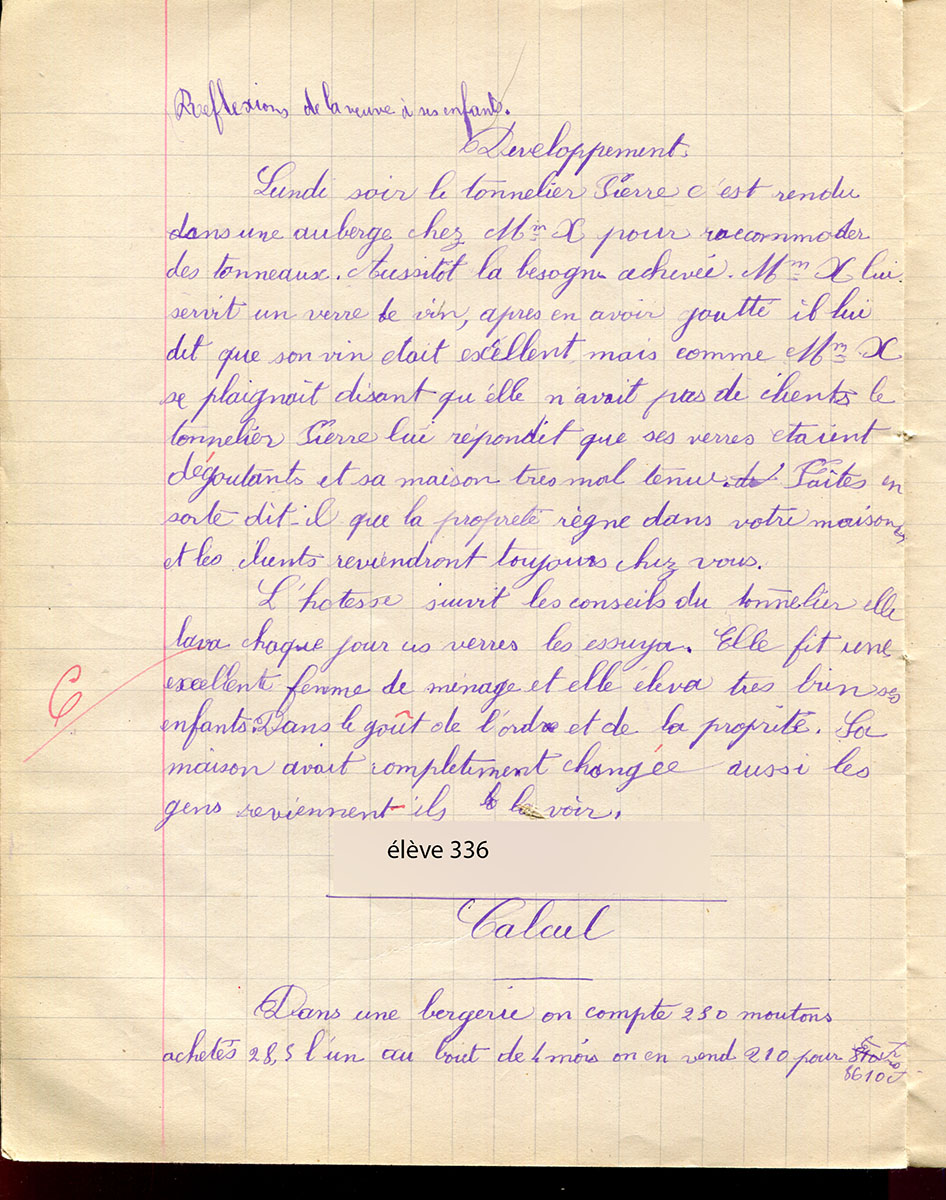 Reflexions de la veuve à ses enfants.
Developpement
Lundi soir le tonnelier Pierre c'est rendu
dans une auberge chez Mm X pour raccommoder
des tonneaux. Aussitôt la besogne achevée. Mm X lui
servit un verre de vin, apres en avoir goutté il lui
dit que son vin etait excellent mais comme Mm X
se plaignait disant qu'elle n'avait pas de clients le
tonnelier Pierre lui répondit que ses verres etaient
dégoutants et sa maison tres mal tenue. Faites en
sorte dit-il que la propreté règne dans votre maison
et les clients reviendront toujours chez vous.
L'hotesse suivit les conseils du tonnelier elle
lava chaque jour ces verres les essuya. Elle fit une
excellente femme de ménage et elle éleva tres bien ses
enfants. Dans le goût de l'ordre et de la proprité. Sa
maison avait completement changée aussi les
gens reviennent-ils la voir.
6
élève 336
Calcul
Dans une bergerie on compte 230 moutons
achetés 28,5 l'un au bout de 4 mois on en vend 210 pour
8610